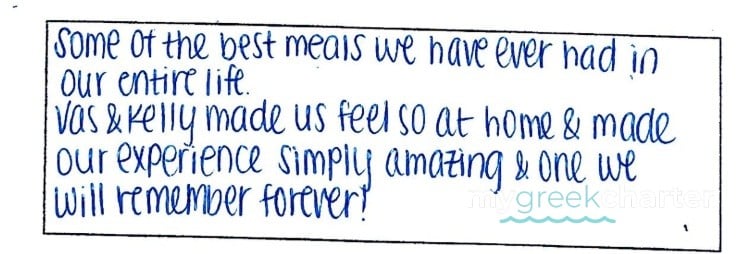 Some of the best meals we have ever had in
our entire life.
Vas & Kelly made us feel so at home & made
our experience simply amazing & one we
will remember forever!
mygreekcharter